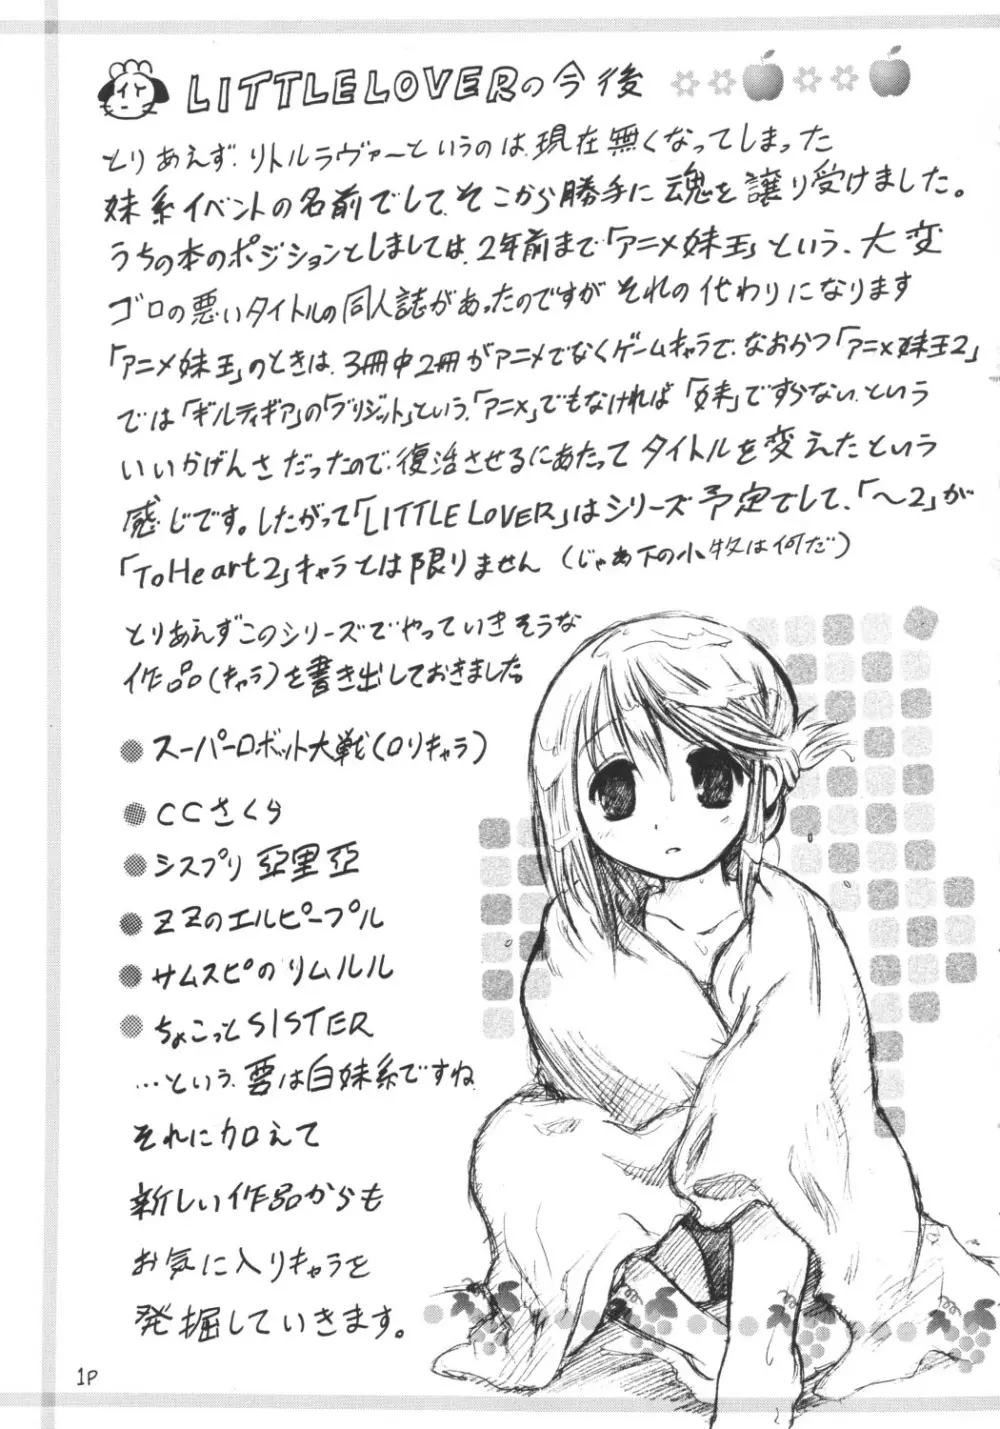 LITTLELOVERの今後
とりあえず、リトルラヴァーというのは、現在無くなってしまった
妹系イベントの名前でして、そこから勝手に魂を譲り受けました。
うちの本のポジションとしましては、2年前まで「アニメ妹王」という、大変
ゴロの悪いタイトルの同人誌があったのですが それの代わりになります
「アニメ妹王」のときは、3冊中2冊がアニメでなくゲームキャラで、なおかつ「アニメ妹王2」
では「ギルティギア」の「ブリジット」という、「アニメ」でもなければ「妹」ですらない、という
いいかげんさだったので、復活させるにあたってタイトルを変えたという
感じです。したがって「LITTLE LOVER」はシリーズ予定でして、「〜2」が
「ToHeart2」キャラとは限りません (じゃあ下の小牧は何だ)
とりあえずこのシリーズでやっていきそうな
作品(キャラ)を書き出しておきました
●スーパーロボット大戦(ロリキャラ)
●CCさくら
●シスプリ 亞里亞
●ZZのエルピープル
●サムスピのリムルル
●ちょこっとSISTER
…という、
妹系ですね
それに加えて
新しい作品からも
お気に入りキャラを
発掘していきます。
1P